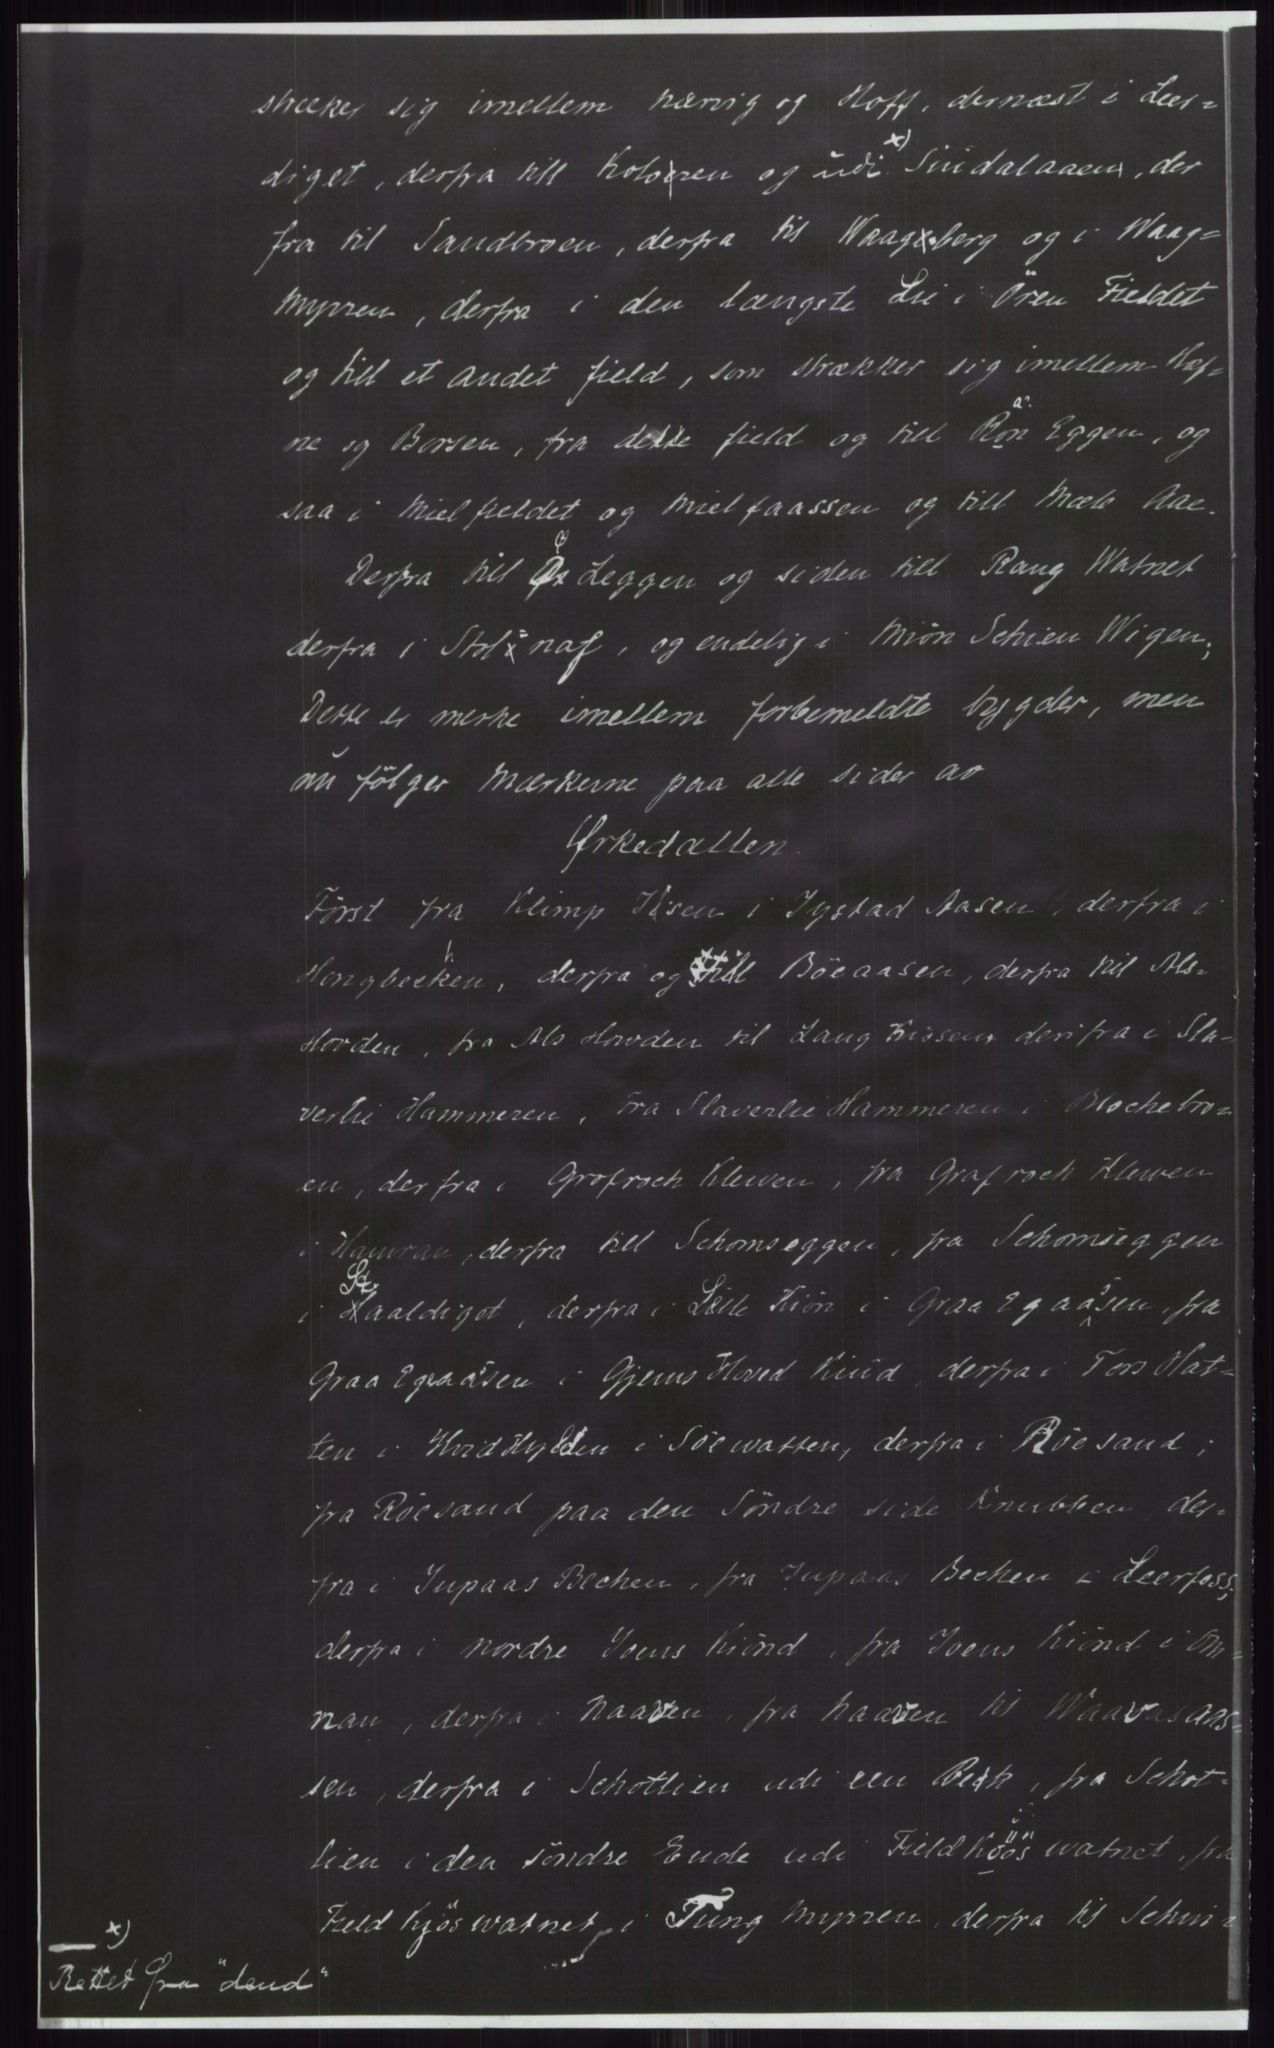 strækker sig imellem Nærvig og Hoff, dernæst i Leer-
diget, derfra till Kolozen og udi x) Sindalaaen, der
fra til Sandbroen, derfra til Waagxberg og i Waag-
myrren, derfra i den længste Lii i Ören Fieldet
og till et andet field, som strækker sig imellem Hef-
ne og Borsen, fra dette field og till Rön Eggen, og
saa i Mielfieldet og Mielfaassen og till Mæle Aae.
Derfra till Leggen og siden till Rang Watnet
derfra i Stol naf, og endelig i Miön Schien Wigen;
Dette er merke imellem forbemeldte bygder, men
nu fölger Mærkerne paa alle sider av
Ørkedallen.
Först fra Klimp Iisen i Iystad Aasen, derfra i
Hongbechen, derfra og till Böeaasen, derfra til Als-
Hovden, fra Als Howden til Lang Kiosen, derifra i Sla-
verlie Hammeren, Fra Slaverlie Hammeren i Blochebro-
en, derfra i Grofroch Klewen, fra Grafroch Klewen
i Hamran, derfra till Schomseggen, fra Schomseggen
i Staaldiget, derfra i Lille Kiön i Graa Egaasen, fra
Graa Egaaasen i Gjems Hoved Kiud, derfra i Fors Hat-
ten i Hvid Hyllen i Söewatten, derfra i Röesand;
fra Röesand paa den Söndre side Knubben, der-
fra i Inpaas Bechen, fra Inpaas Bechen i Leerfoss;
derfra i nordre Ioens Kiönd, fra Ioens Kiönd i Om-
nan, derfra i Naaven, fra Naaven til Waavasaas-
sen, derfra i Schotlien udi een Beck, fra Schot-
lien i den söndre Ende udi Field Kiös watnet, fra
Field Kjös watnet i Tung Myrren, derfra til Schwi-
x)
Rettet fra "dend"